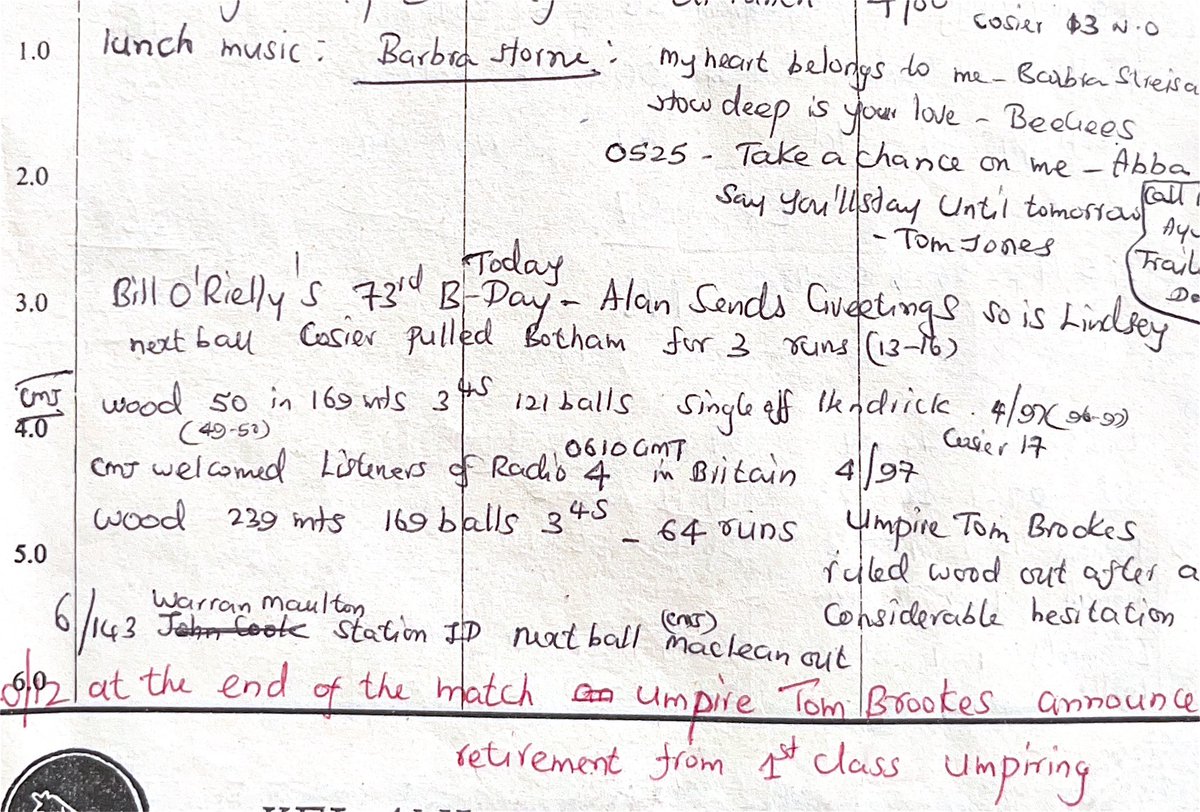 4/100
Cosier 13 N.O
1.0 lunch music: Barbra Horne: my heart belongs to me - Barbra Streisa
How deep is your love - BeeGees
0525 - Take a chance on me - Abba
2.0 Say You'll stay Until tomorrow
- Tom Jones
Call
Trail
Today
3.0 Bill O'Rielly's 73rd B-Day - Alan Sends Greetings so is Lindsey
next ball Cosier pulled Botham for 3 runs (13-16)
CMJ wood 50 in 169 mts 3 4s 121 balls single off Hendrick. 4/97 (96-97)
4.0 (49-50) Cosier 17
0610 GMT
CMJ welcomed Listeners of Radio 4 in Britain 4/97
wood 239 mts 169 balls 3 4s - 64 runs Umpire Tom Brookes
5.0 ruled wood out after a
considerable hesitation
Warran Maulton
6/143 John Cook Station ID next ball (CMJ) Maclean out
6.0
at the end of the match Umpire Tom Brookes announce
retirement from 1st class Umpiring